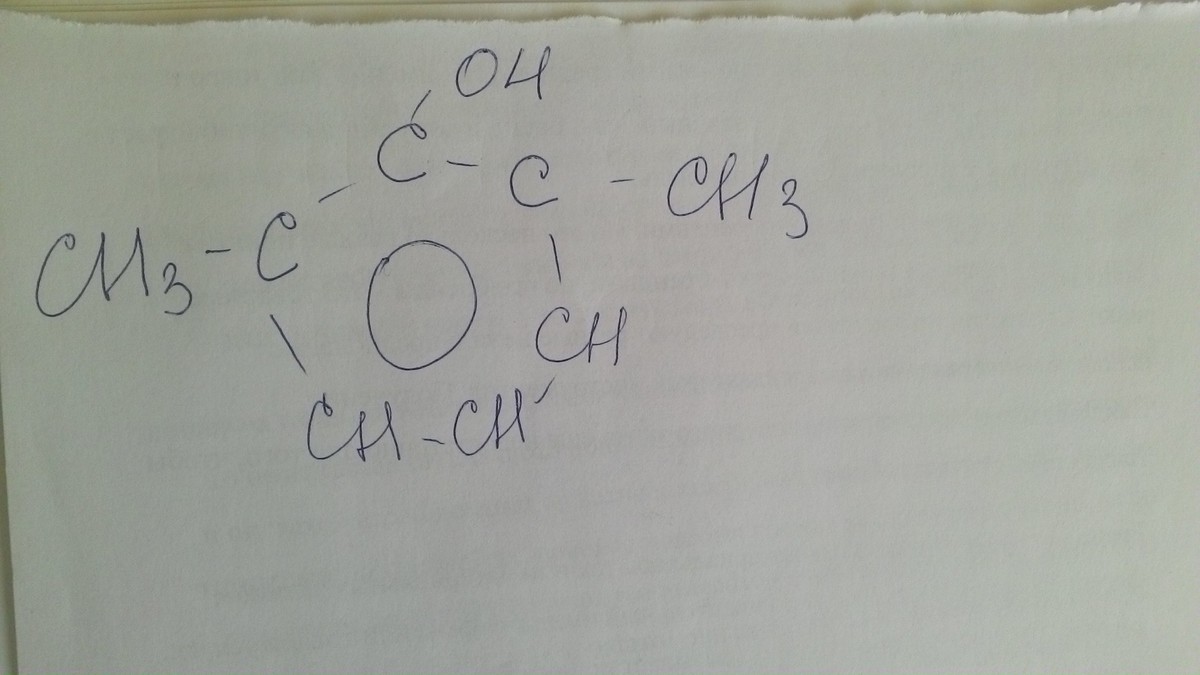 OH
C - C - CH3
CH3 - C
CH
CH - CH